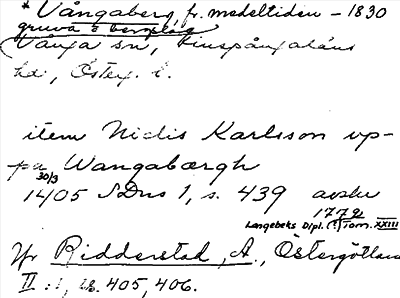 * Vångaberg, fr. medeltiden – 1830
gruva o berglag
Vånga sn, Finspångaläns
hd, Österg. l.
item Niclis Karlsson vp-
pa Wangabærgh
30/3
1405 SDns 1, s. 439 avskr
1772
Langebeks Dipl. (!) Tom. XXIII
Jfr Ridderstad, A., Östergötland
II:1, s. 405, 406.